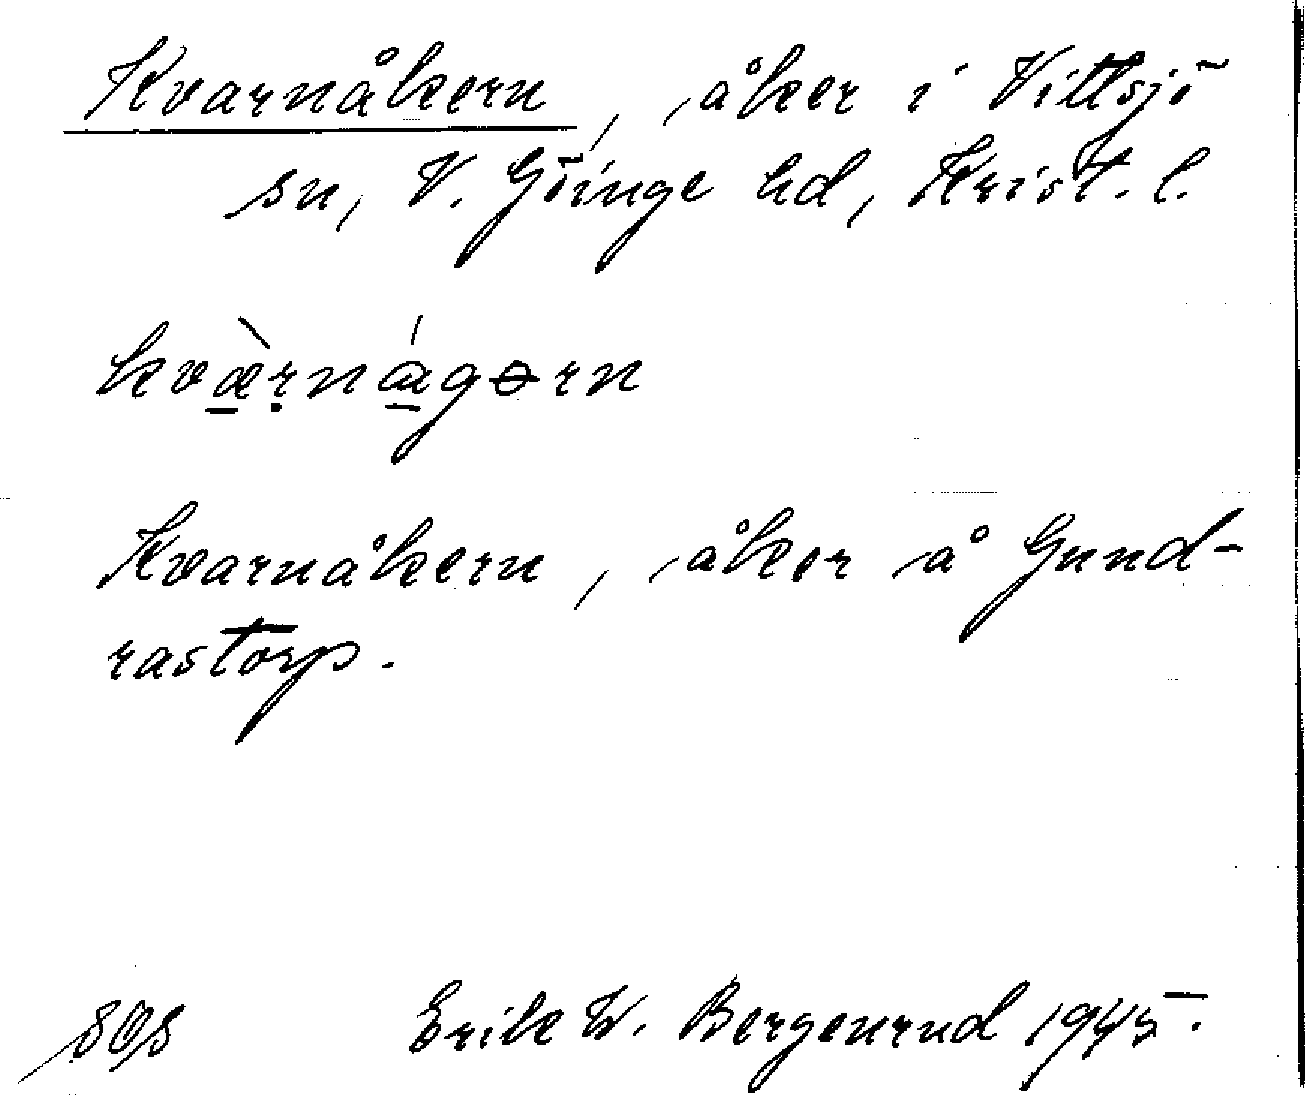 Kvarnåkern, åker i Vittsjö
sn, V. Göinge hd, Krist. l.
kvæ̠̀ṛná̠gɵrn
Kvarnåkern, åker å Gund-
rastorp.
Erik W. Bergenrud 1945.